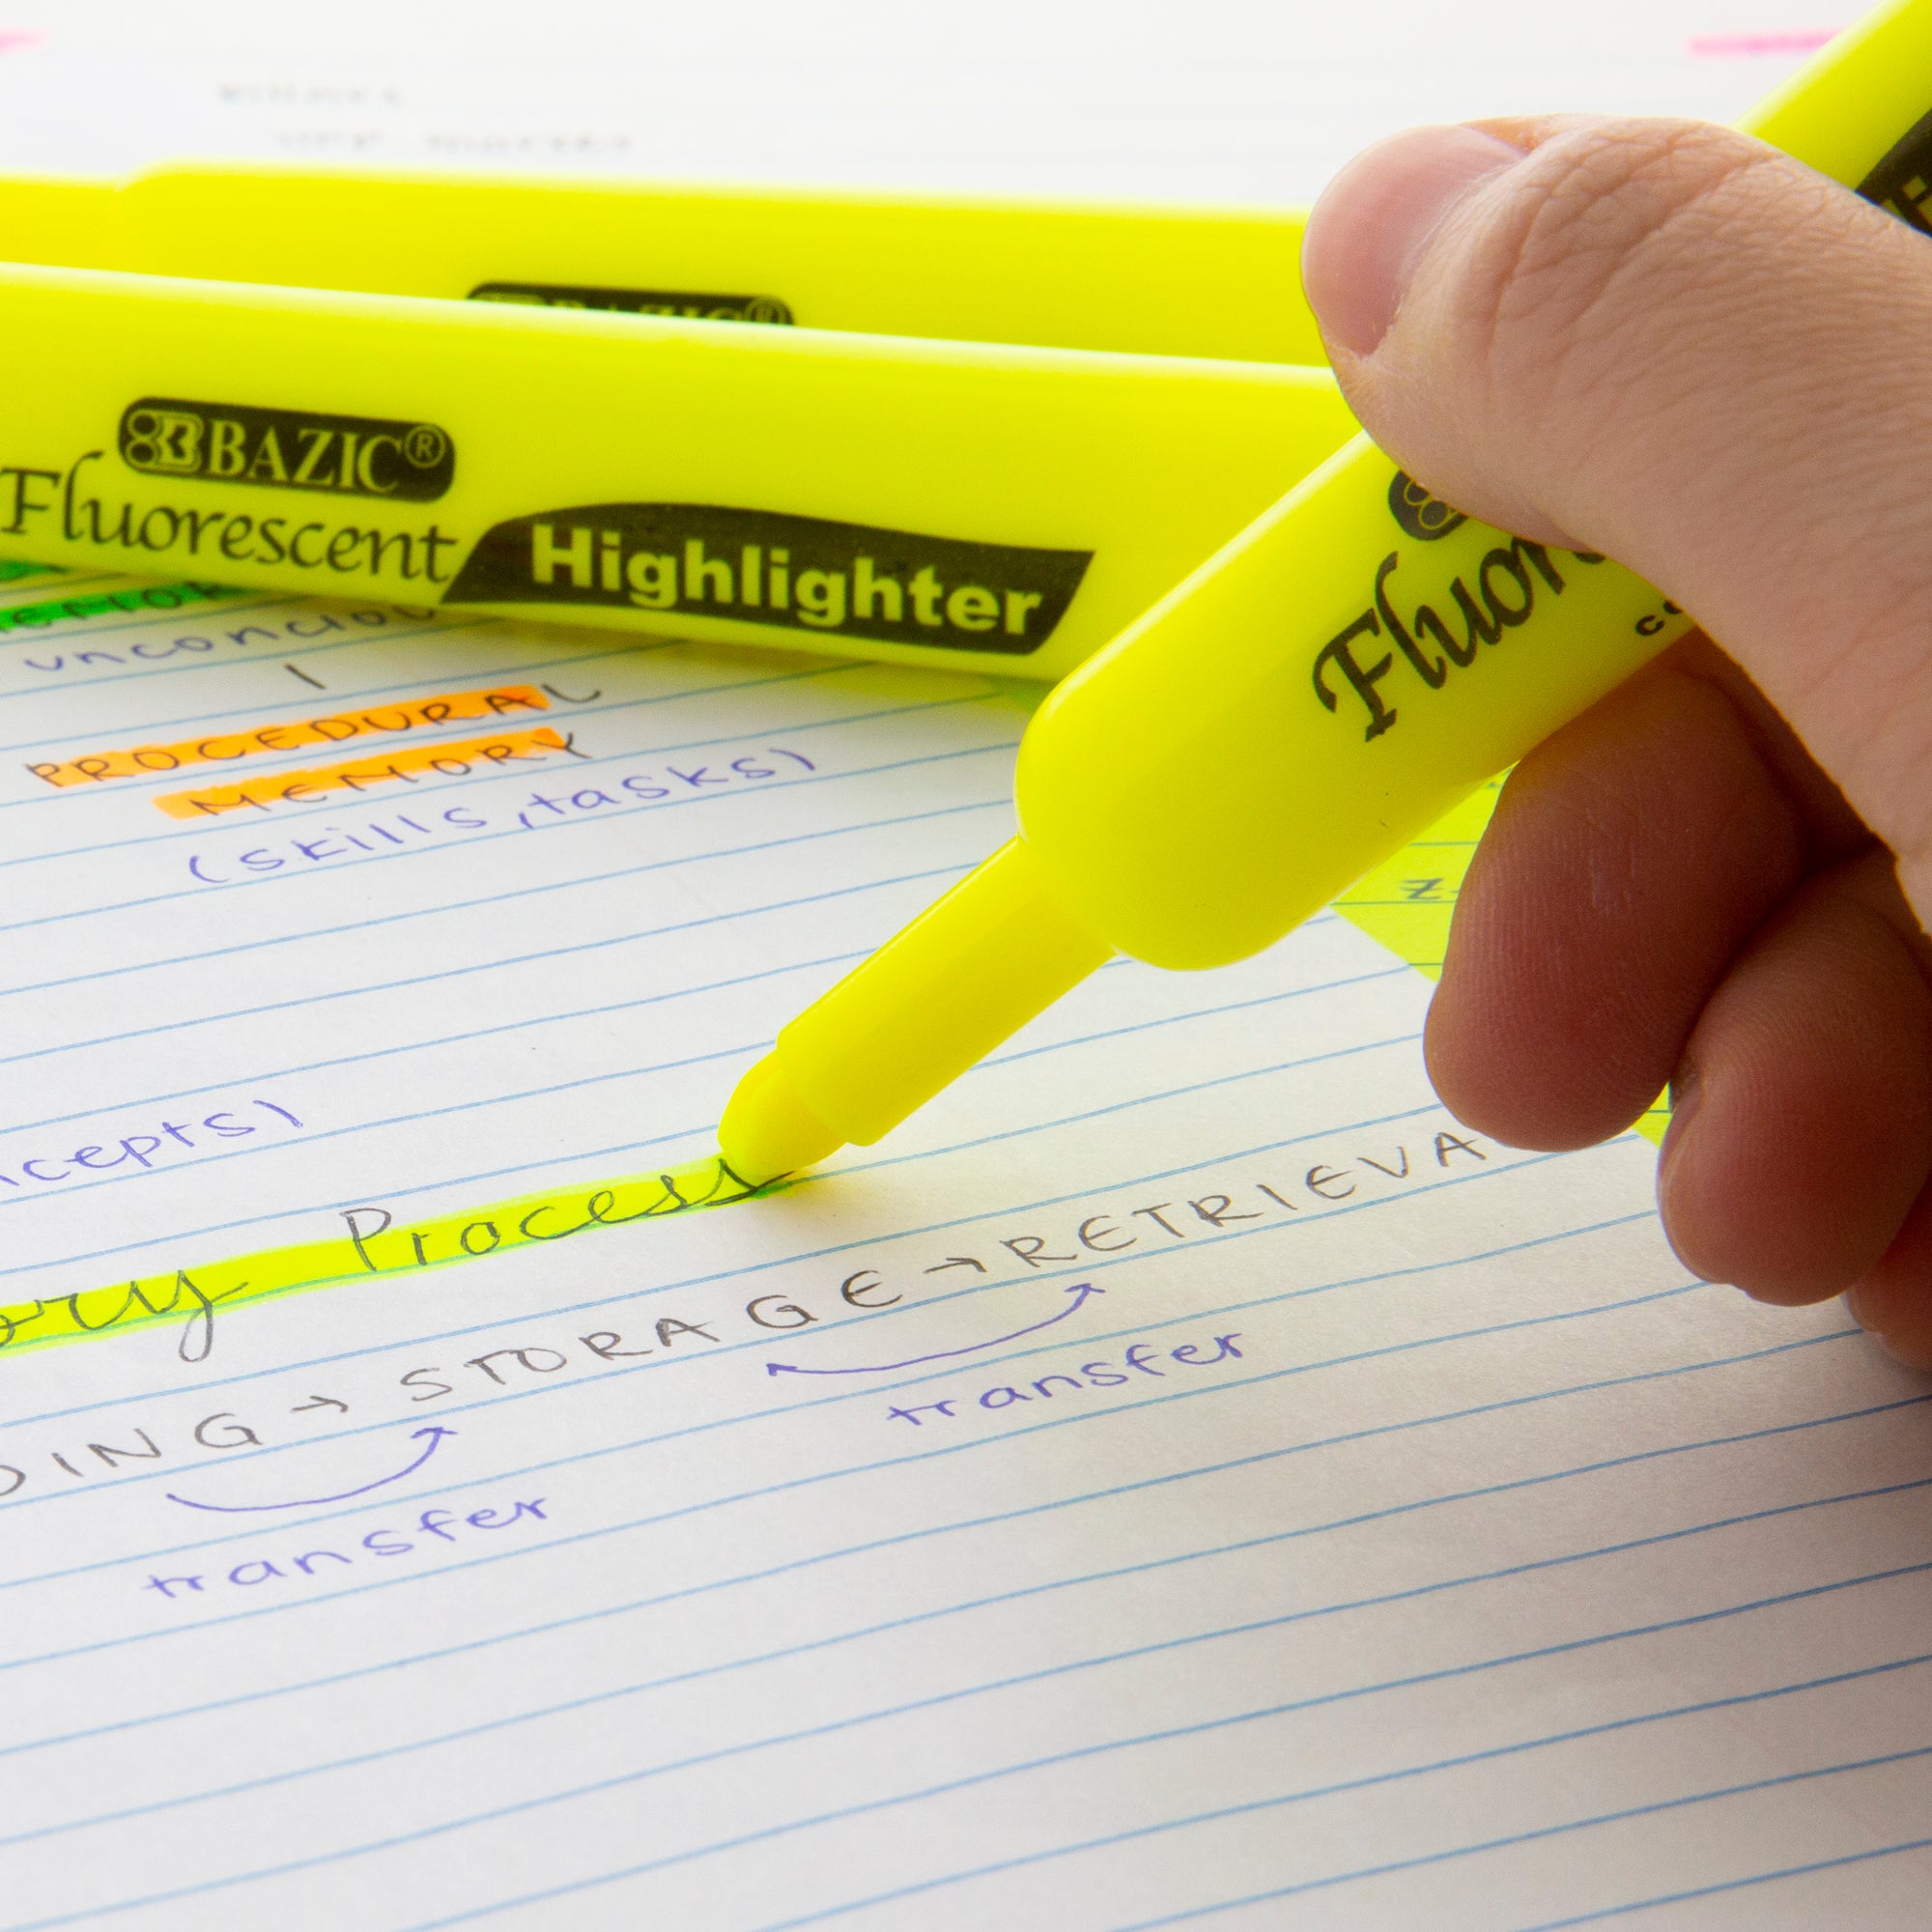 BAZIC®
BAZIC®
Fluorescent Highlighter
Fluor
unconciou
PROCEDURAL
MEMORY
(skills, tasks)
cepts)
ory Process
DING → STORAGE → RETRIEVA
transfer
transfer